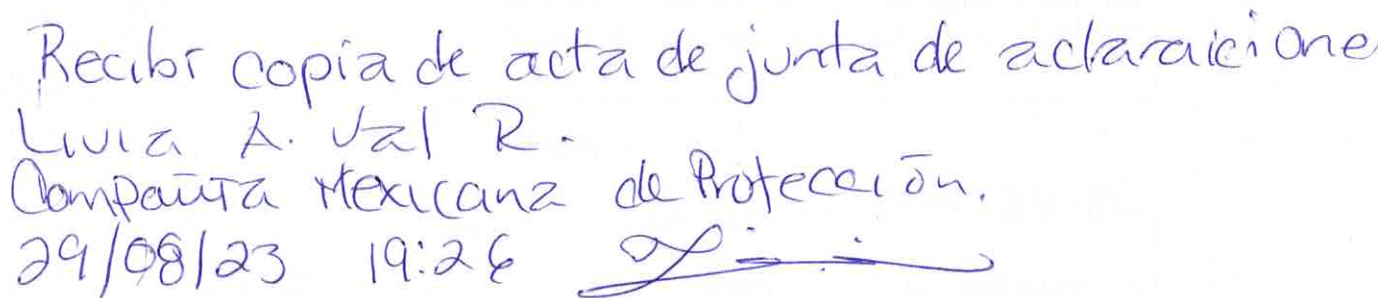 Recibi copia de acta de junta de aclaraicione
Livia A. Val R.
Compañia Mexicana de Protección.
29/08/23 19:26